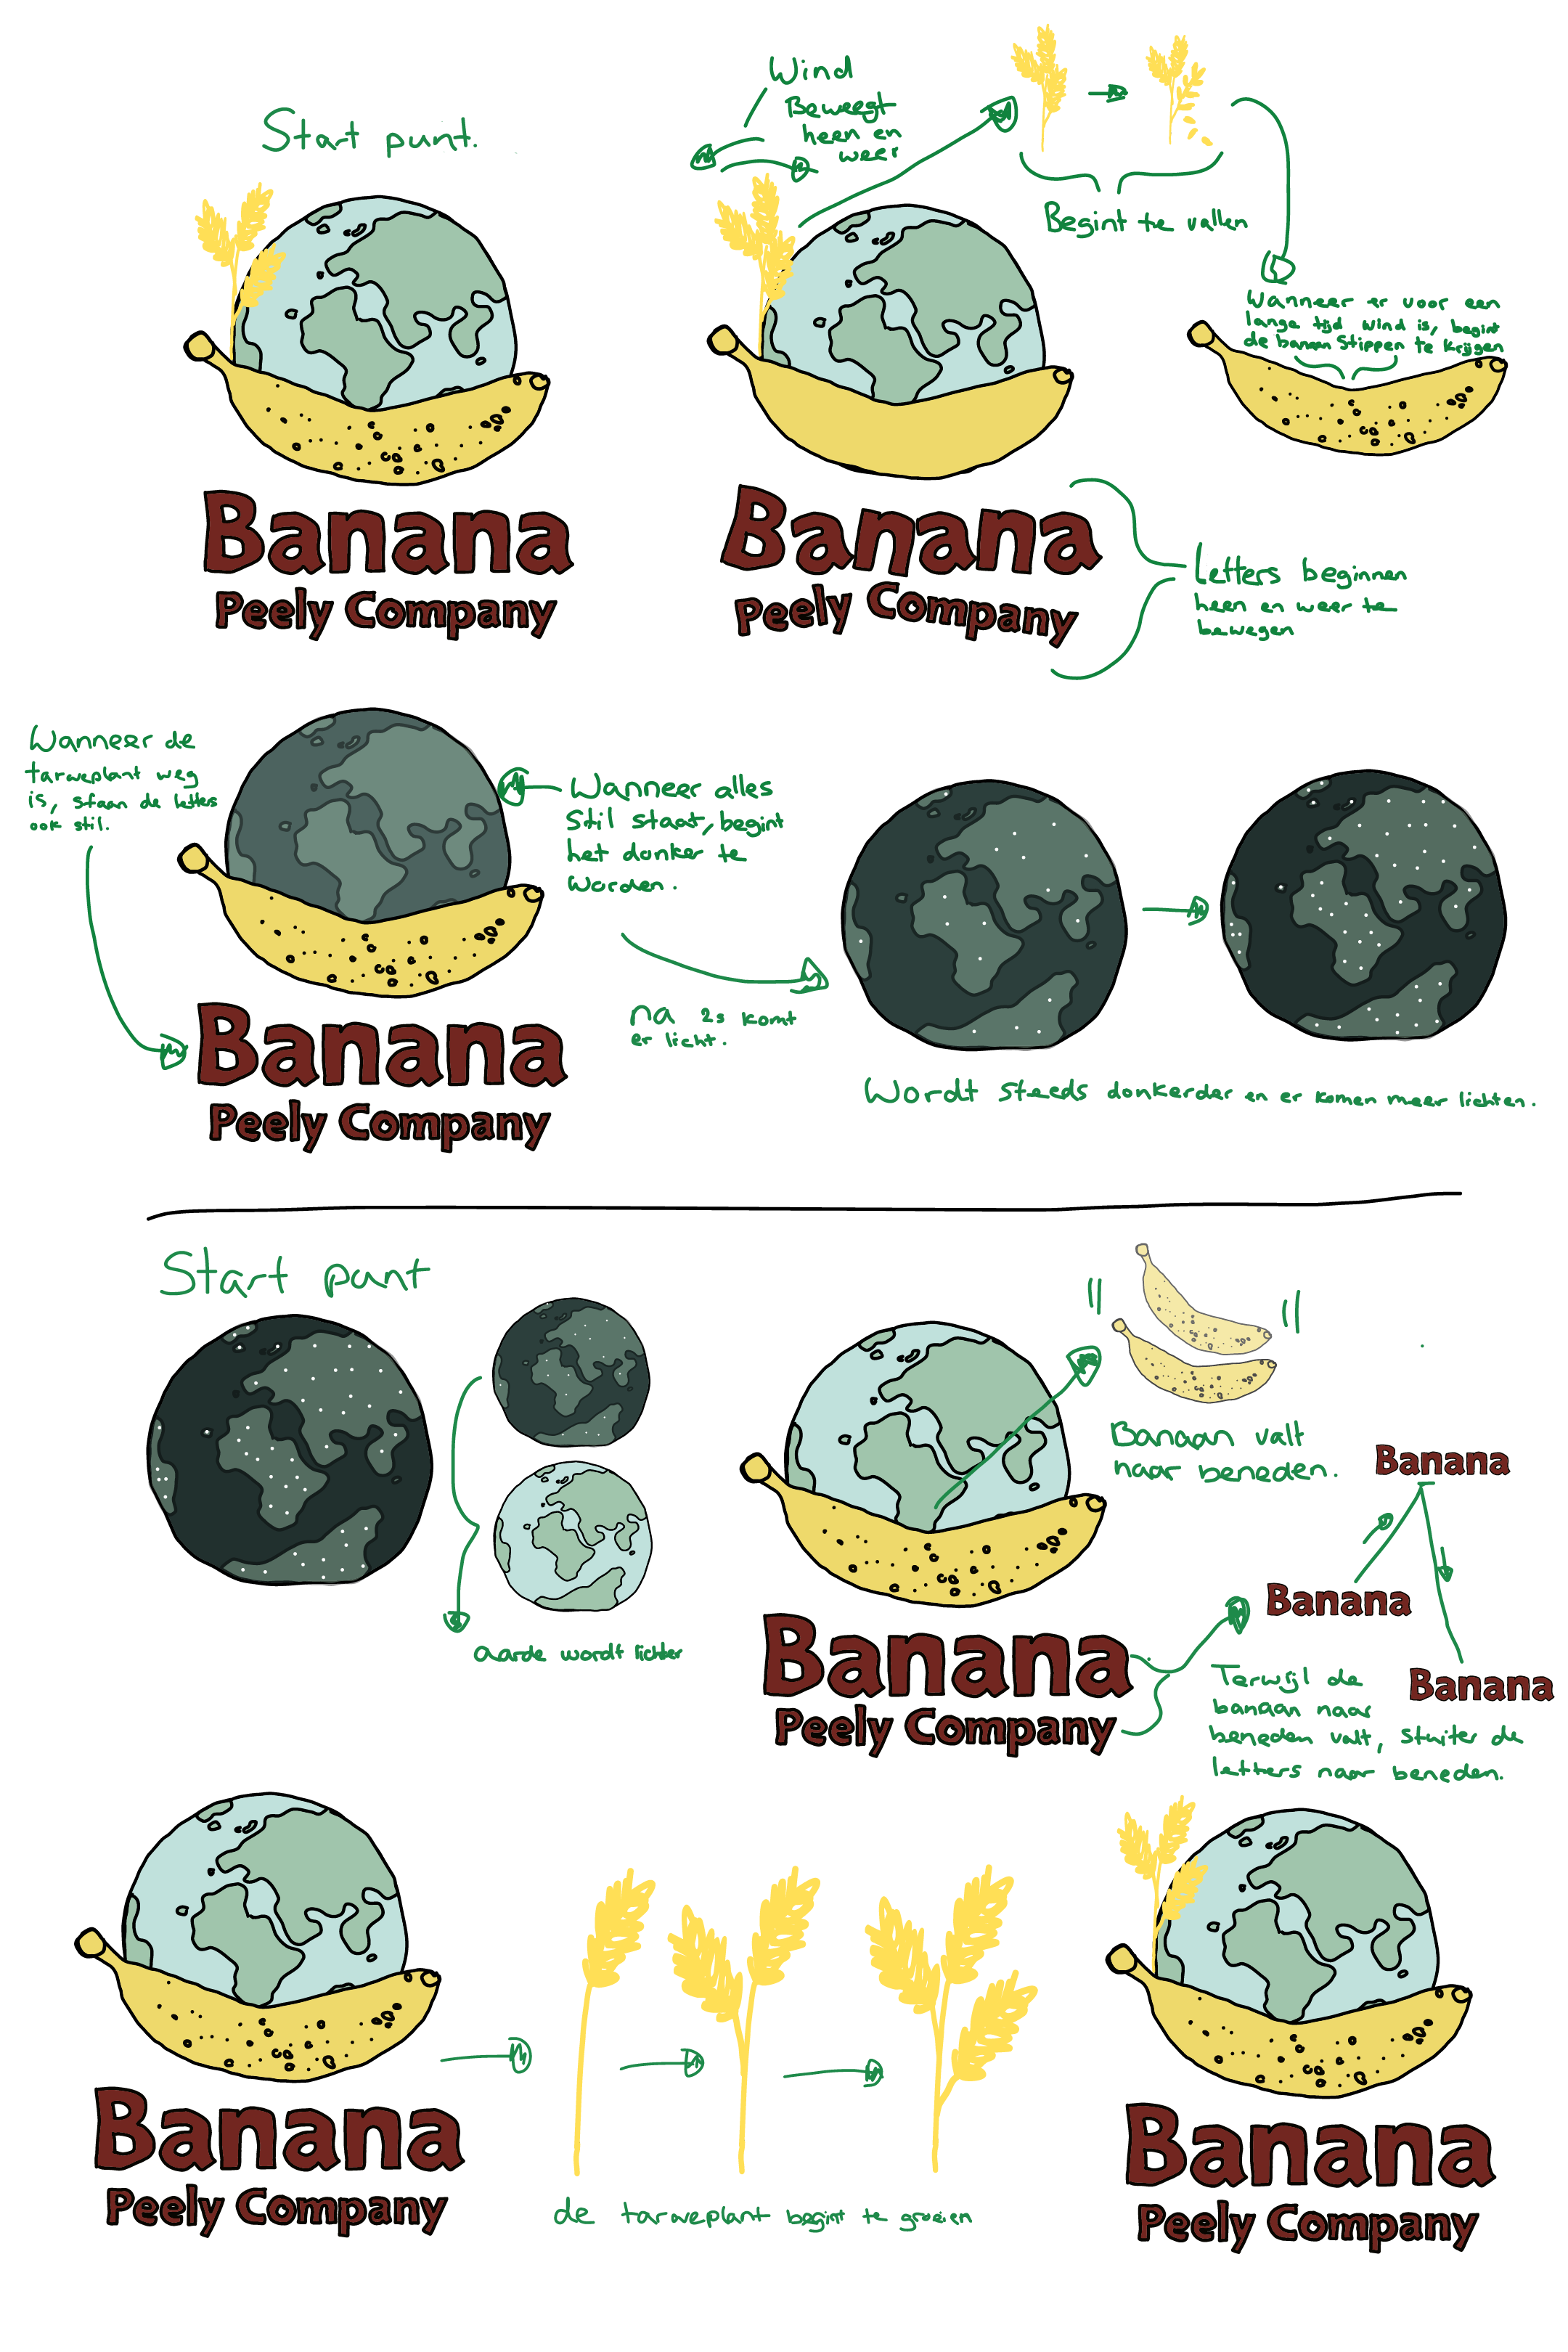 Start punt.
Wind
Beweegt
heen en
weer
Begint te vallen
Wanneer er voor een
lange tijd wind is, begint
de banaan stippen te krijgen
Banana
Peely Company
Banana
Peely Company
Letters beginnen
heen en weer te
bewegen
Wanneer de
tarweplant weg
is, staan de letters
ook stil.
Wanneer alles
Stil staat, begint
het donker te
worden.
Banana
Peely Company
na 2s komt
er licht.
Wordt steeds donkerder en er komen meer lichten.
Start punt
aarde wordt lichter
Banaan valt
naar beneden.
Banana
Banana
Banana
Banana
Peely Company
Terwijl de
banaan naar
beneden valt, stuiter de
letters naar beneden.
Banana
Peely Company
de tarweplant begint te groeien
Banana
Peely Company